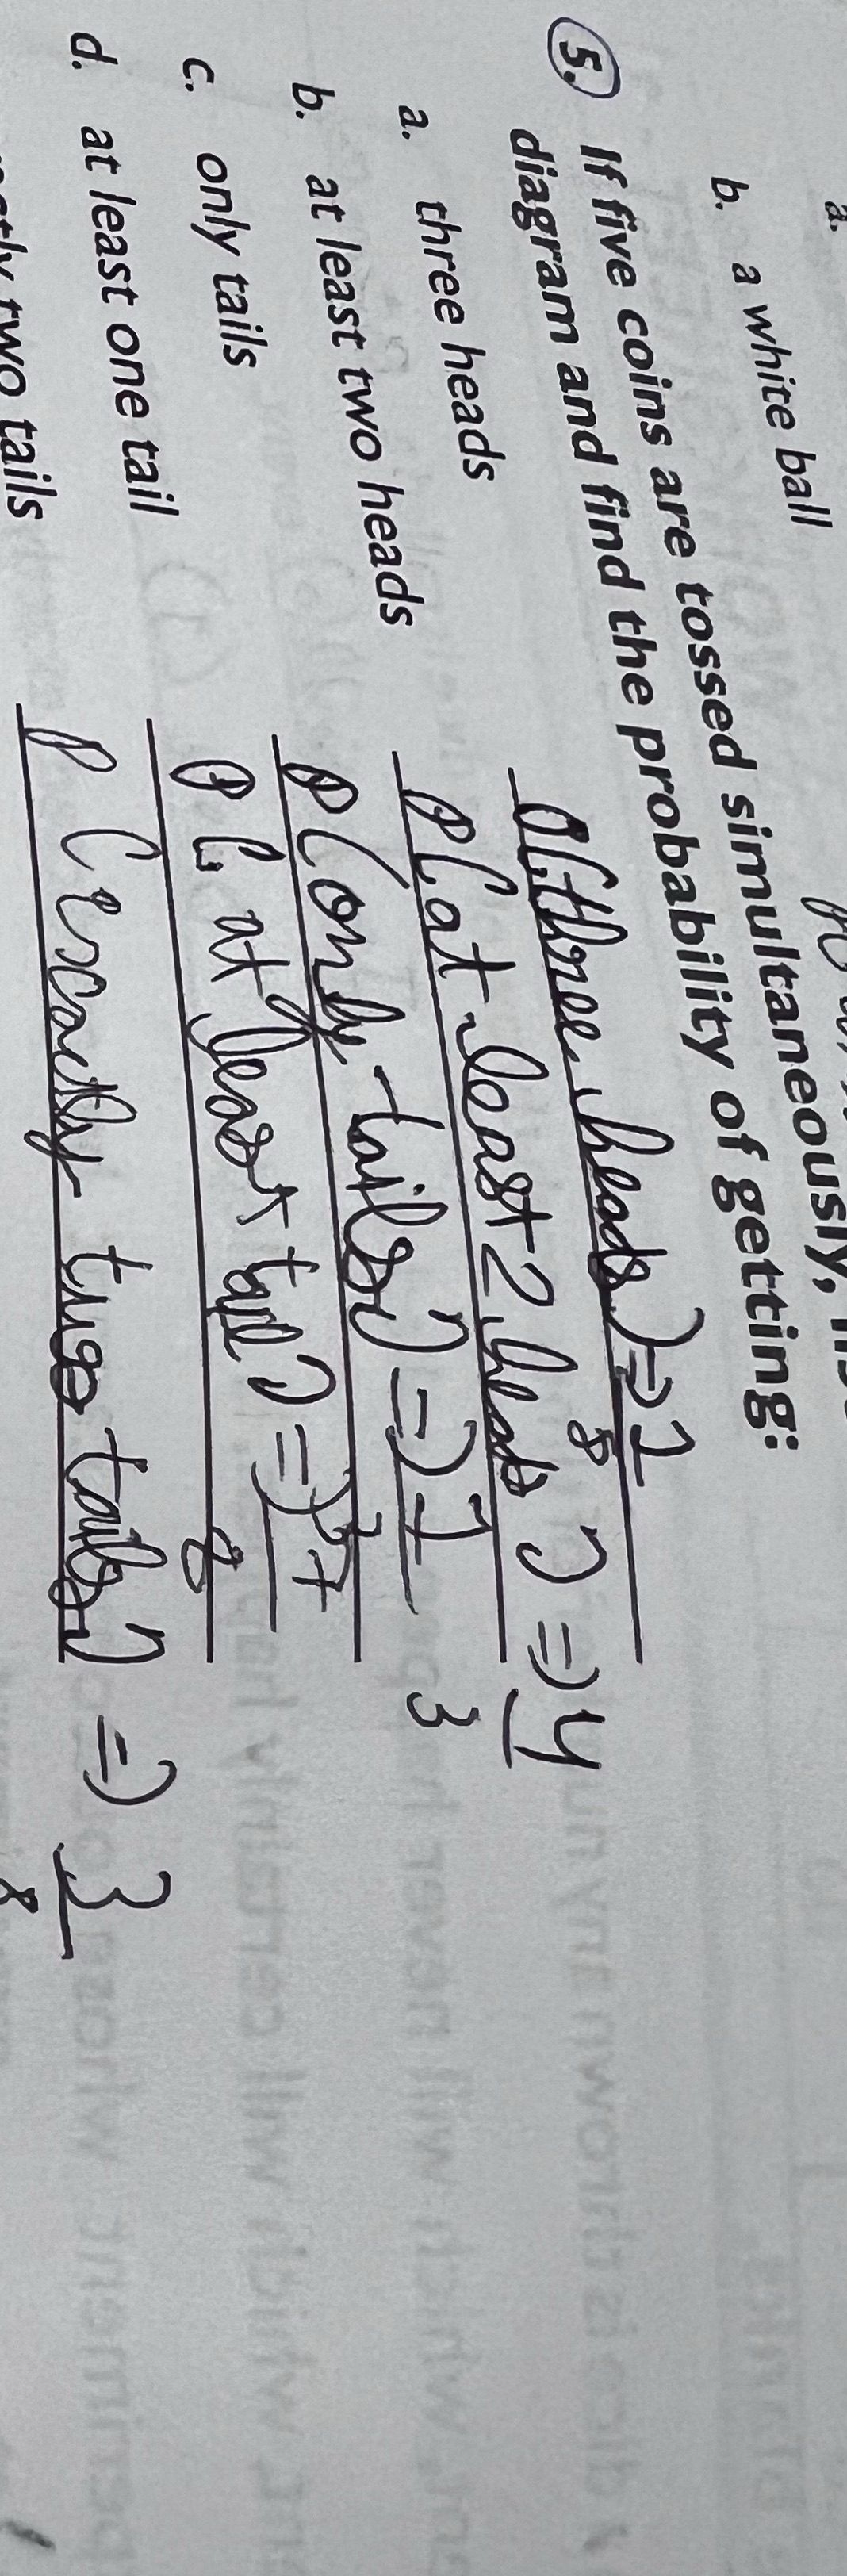 a.
b. a white ball
5. If five coins are tossed simultaneously,
diagram and find the probability of getting:
a. three heads
P(three heads) => 1
8
b. at least two heads
P(at least 2 heads) => 4
c. only tails
P(only tails) => 1
3
d. at least one tail
P(at least tail) => 7
8
two tails
P(exactly two tails) => 3
8